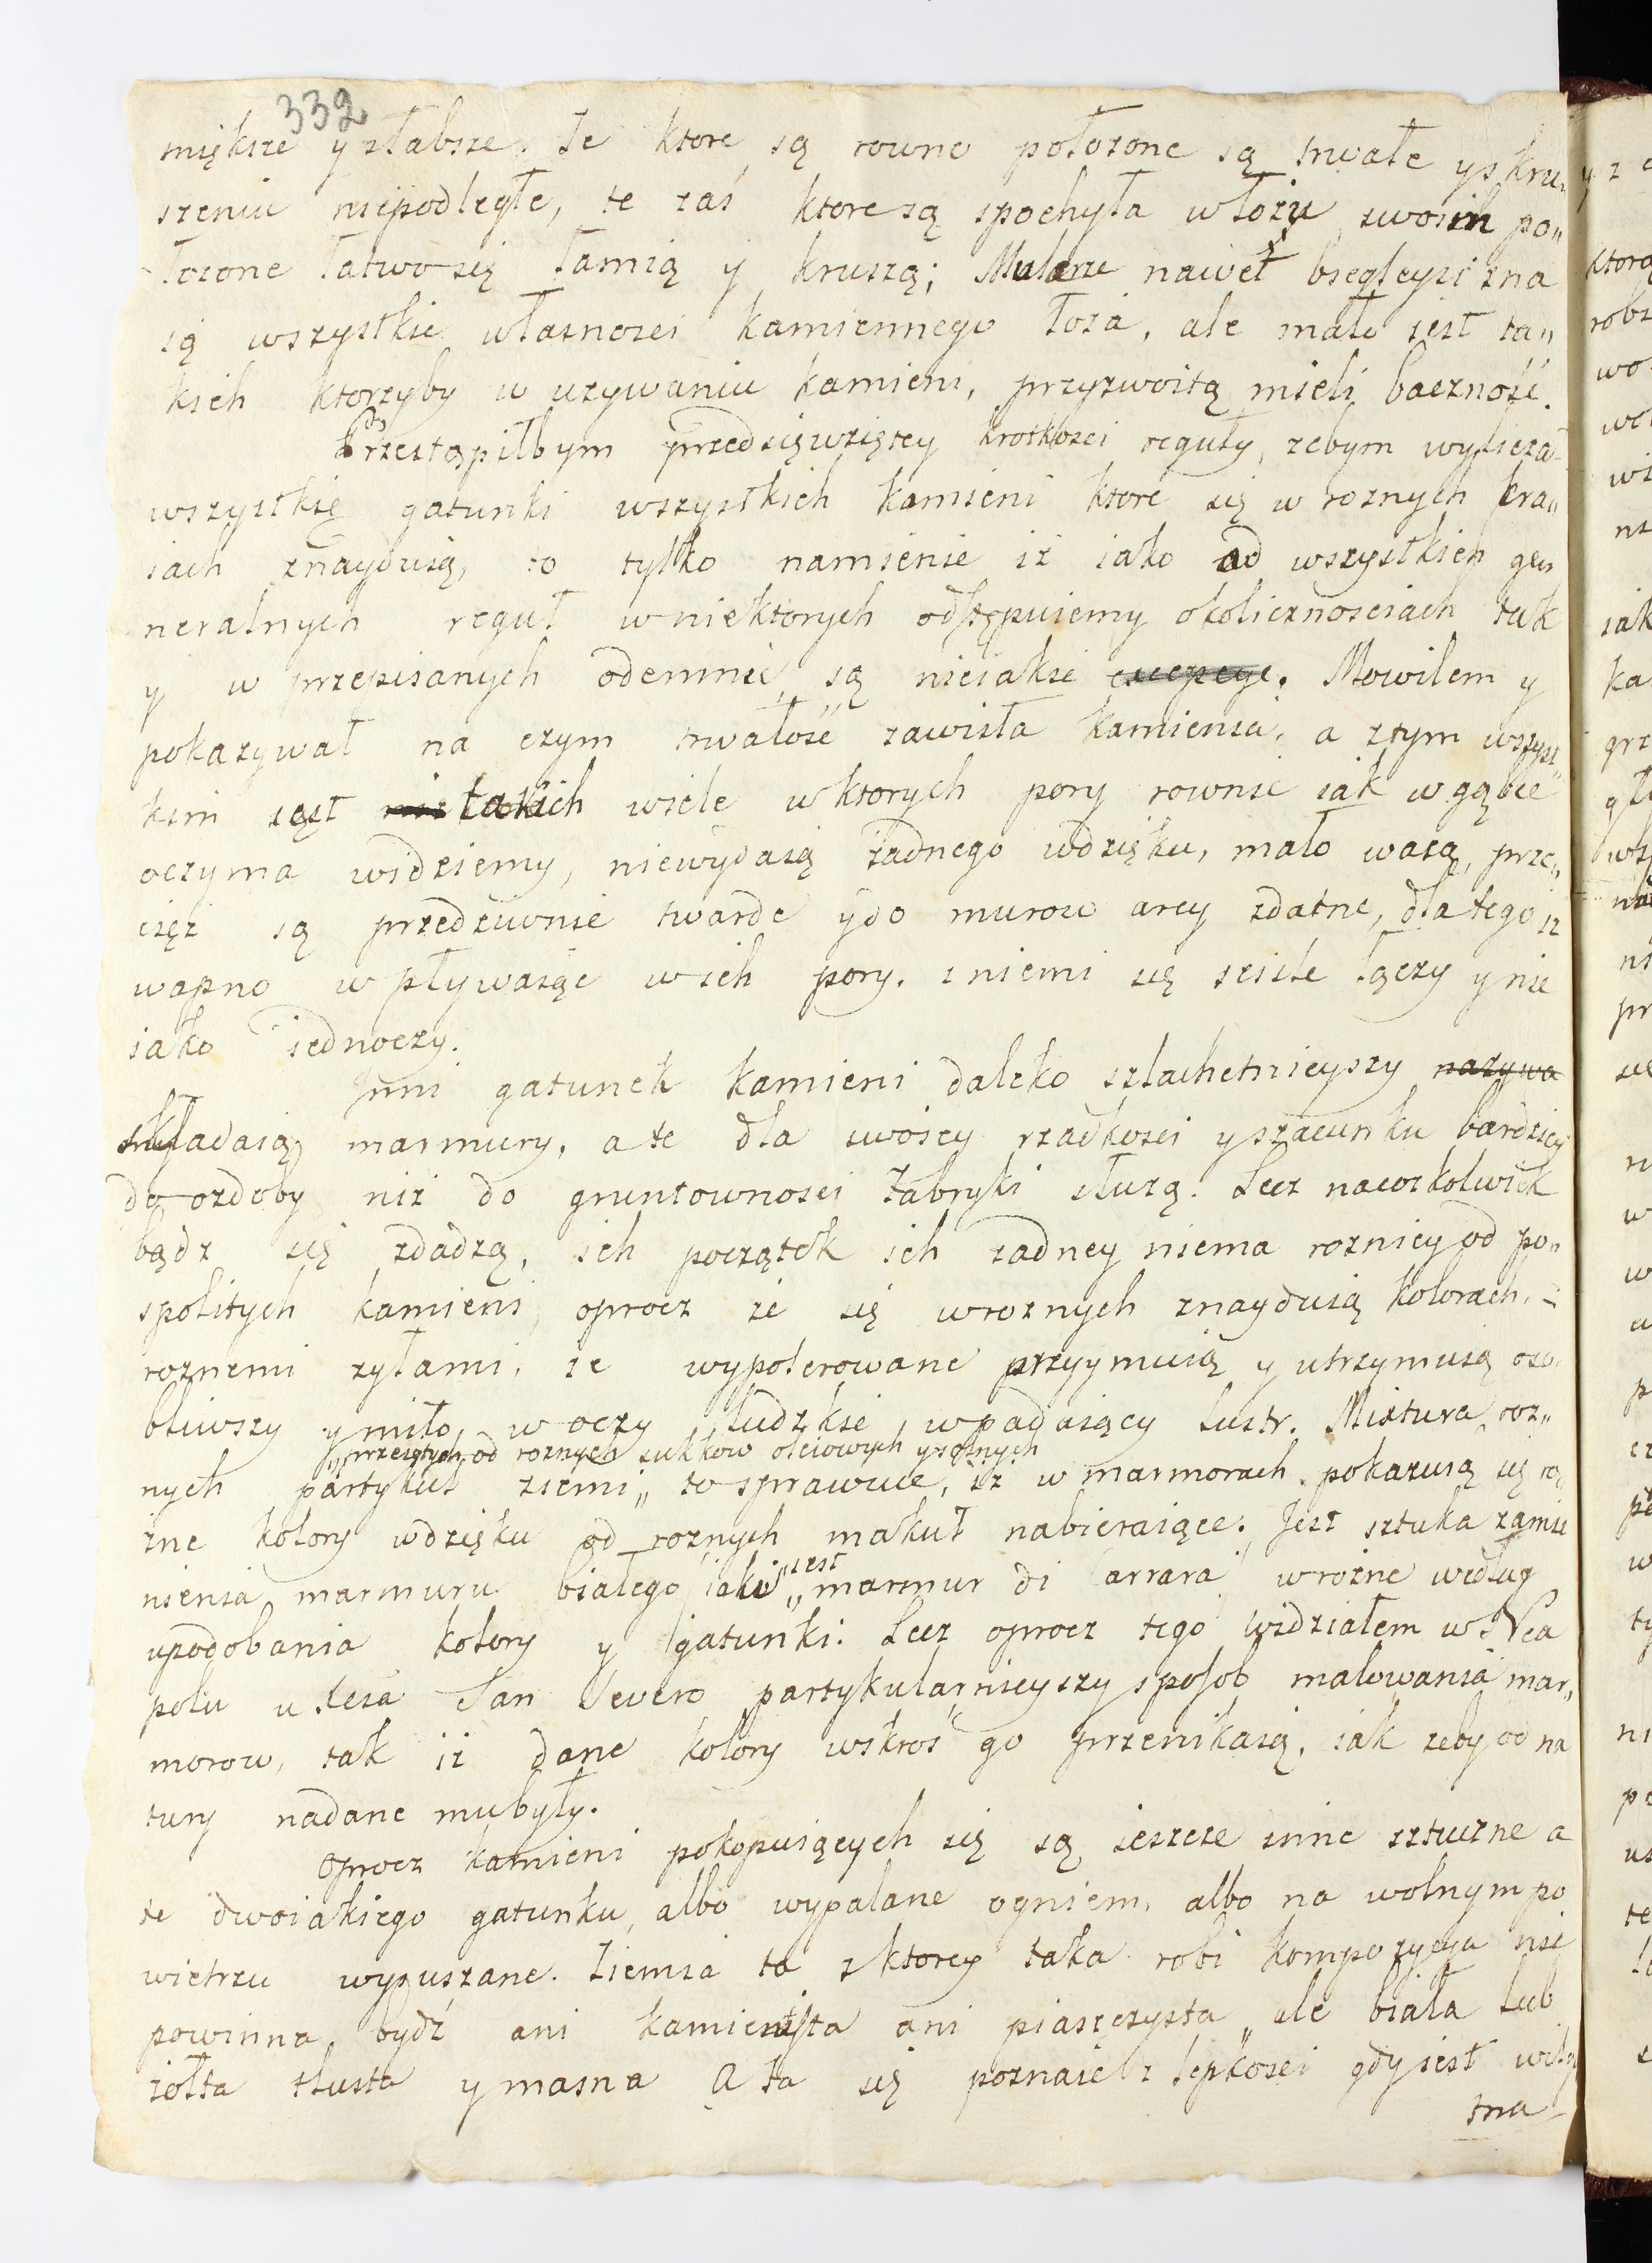 332
miększe y słabsze. Te ktore są rowno położone są trwałe y skru„
szeniu niepodległe, te zaś ktore są spochyła w łożu swoim po„
łozone łatwo się łamią y kruszą; Mularze nawet biegleysi zna
ią wszystkie własnosci kamiennego łoża, ale mało iest ta„
kich ktorzyby w uzywaniu kamieni, przyzwoitą mieli baczność.
Przestąpiłbym przedsięwziętey krotkosci reguły, zebym wyliczał
wszystkie gatunki wszystkich kamieni ktore się w roznych kra„
iach znayduią, to tylko namienie iż iako od wszystkich gen
neralnych reguł w niektorych odstępuiemy okolicznosciach tak
y w przepisanych odemnie są nieiakie excepcye. Mowilem y
pokazywał na czym trwałość zawisła kamienia, a z tym wszyst„
kim iest nie takich wiele w ktorych pory rownie iak w gąbce
oczyma widziemy, niewydaią żadnego wdzięku, mało ważą, prze„
cięż są przedziwnie twarde y do murow arcy zdatne, dla tego iz
wapno wpływaiąc w ich pory, z niemi się sciśle łączy y nie
iako iednoczy.
Inni gatunek kamieni daleko szlachetnieyszy nazywa
składaią marmury, a te dla swoiey rzadkosci y szacunku bardziey
do ozdoby niż do gruntownosci fabryki służą. Lecz na cożkolwiek
bądz się zdadzą, ich początek ich zadney niema roznicy od po„
spolitych kamieni, oprocz że się w roznych znayduią kolorach, z
roznemi zyłami, że wypolerowane przyymuią y utrzymuią oso„
bliwszy y miło w oczy ludzkie wpadaiący lustr. Mixtura roz„
„przeiętych od roznych sukkow oleiowych y solnych
nych partykuł ziemi„ to sprawuie, iż w marmorach pokazuią się ro
żne kolory wdzięku od roznych makuł nabieraiące. Jest sztuka zamie
nienia marmuru białego iaki „iest„ marmur di Carrara w rożne według
upodobania kolory y gatunki. Lecz oprocz tego widziałem w Nea
polu u Xcia San Severo partykularnieyszy sposob malowania mar„
morow, tak iż dane kolory wskroś go przenikaią, iak zeby od na
tury nadane mu były.
Oprocz kamieni pokopuiących się są ieszcze inne sztuczne a
te dwoiakiego gatunku, albo wypalane ogniem, albo na wolnym po
wietrzu wysuszane. Ziemia ta z ktorey taka robi kompozycya nie
powinna bydź ani kamienista ani piaszczysta, ale biała lub
żołta tłusta y masna a ta się poznaie z lepkosci gdy iest wilg
tna